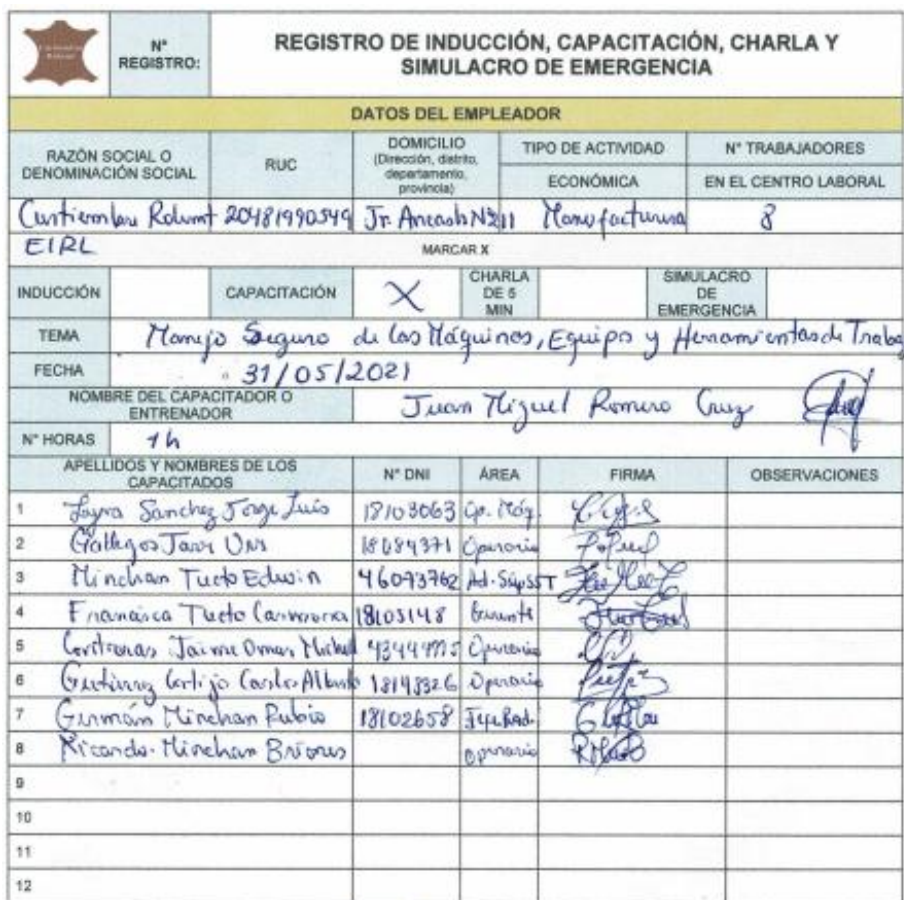 N° REGISTRO:
REGISTRO DE INDUCCIÓN, CAPACITACIÓN, CHARLA Y SIMULACRO DE EMERGENCIA
DATOS DEL EMPLEADOR
RAZÓN SOCIAL O DENOMINACIÓN SOCIAL
RUC
DOMICILIO (Dirección, distrito, departamento, provincia)
TIPO DE ACTIVIDAD ECONÓMICA
N° TRABAJADORES EN EL CENTRO LABORAL
EIRL
20481990549
Jr. Ancash N°
Manufacturera
8
MARCAR X
INDUCCIÓN
CAPACITACIÓN X
CHARLA DE 5 MIN
SIMULACRO DE EMERGENCIA
TEMA Manejo Seguro de las Máquinas, Equipos y Herramientas de Trabajo
FECHA 31/05/2021
NOMBRE DEL CAPACITADOR O ENTRENADOR Juan Miguel Romero Cruz
N° HORAS 1h
APELLIDOS Y NOMBRES DE LOS CAPACITADOS N° DNI ÁREA FIRMA OBSERVACIONES
1 Sanchez Jorge Luis 18103063 Op. Máq.
2 Gallegos 18684371 Operario
3 Minchan Tucto Edwin 46093762 Ad. Sup SST
4 Francisca Tucto 18105148 Gerente
5 Contreras Jaime Omar Michel Operario
6 Gutierrez Cortijo Carlos Alberto 18148326 Operario
7 Germán Minchan Rubio 18102658
8 Ricardo Minchan Briones operario
9
10
11
12